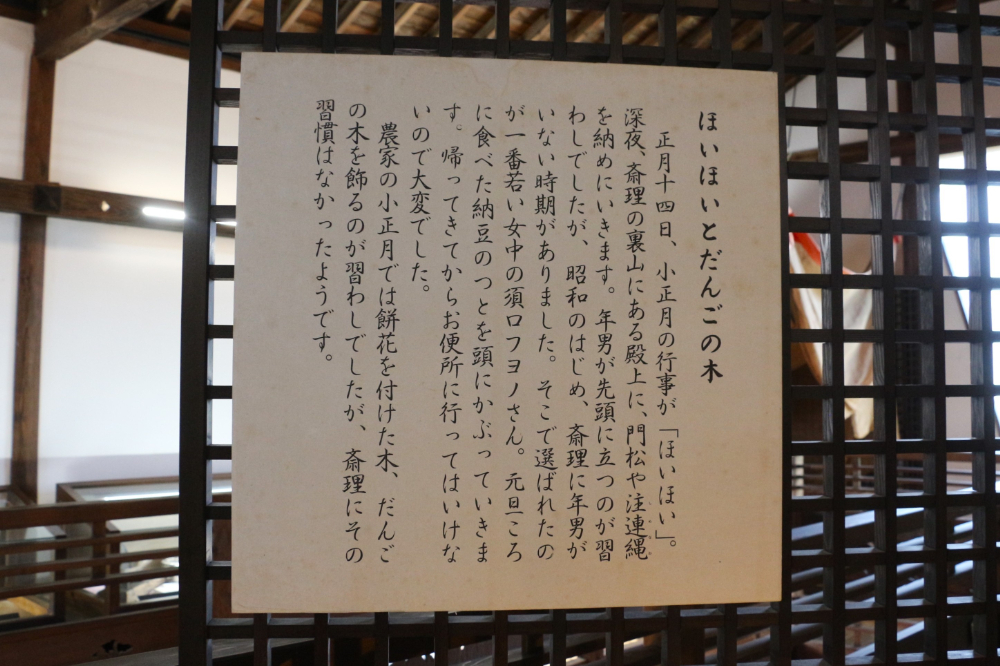 ほいほいとだんごの木
正月十四日、小正月の行事が「ほいほい」。
深夜、斎理の裏山にある殿上に、門松や注連縄
を納めにいきます。年男が先頭に立つのが習
わしでしたが、昭和のはじめ、斎理に年男が
いない時期がありました。そこで選ばれたの
が一番若い女中の須口フヨノさん。元旦ころ
に食べた納豆のつとを頭にかぶっていきま
す。帰ってきてからお便所に行ってはいけな
いので大変でした。
農家の小正月では餅花を付けた木、だんご
の木を飾るのが習わしでしたが、斎理にその
習慣はなかったようです。